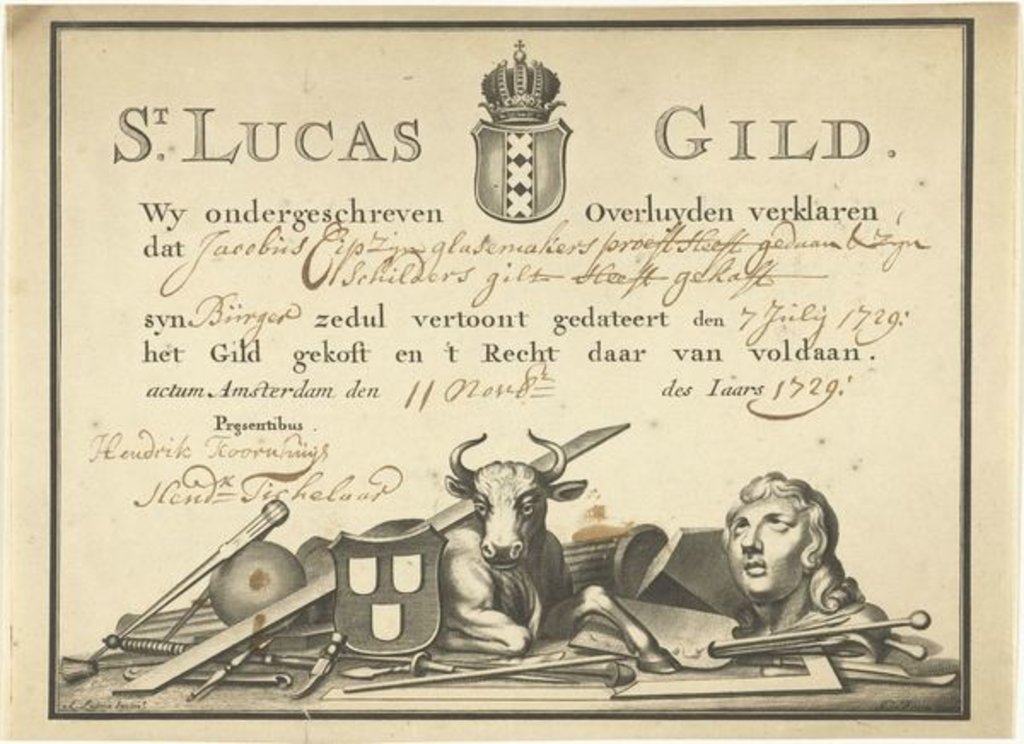 ST. LUCAS GILD.
Wy ondergeschreven Overluyden verklaren
dat Jacobus Zijn glasemakers proeft Heeft gedaan & Zyn
Schilders gilt Heeft gekoft
syn Burger zedul vertoont gedateert den 7 July 1729:
het Gild gekoft en 't Recht daar van voldaan.
actum Amsterdam den 11 Novbr des Iaars 1729:
Presentibus.
Hendrik
Hendk Tichelaar